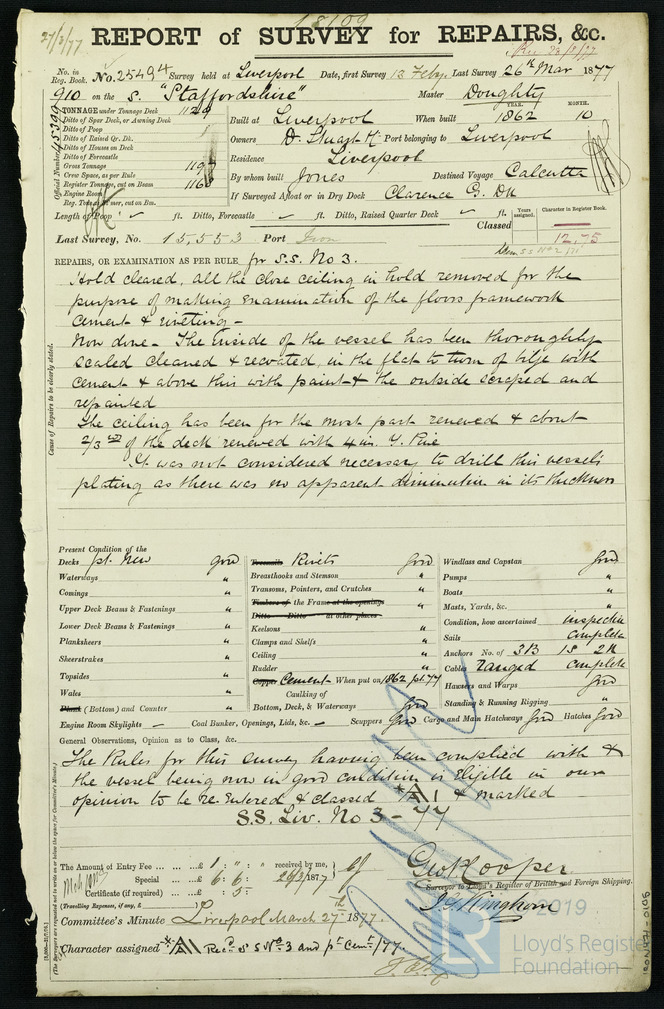 27/3/77
18109
REPORT of SURVEY for REPAIRS, &c.
Rec 28/3/77
No. in Reg. Book. No. 25494 Survey held at Liverpool Date, first Survey 13 Feby. Last Survey 26th Mar 1877
910 on the S. "Staffordshire" Master Doughty
TONNAGE under Tonnage Deck 1129
Ditto of Spar Deck, or Awning Deck
Ditto of Poop
Ditto of Raised Qr. Dk.
Ditto of Houses on Deck
Ditto of Forecastle
Gross Tonnage
Crew Space, as per Rule
Register Tonnage, cut on Beam
Engine Room
Official Number 45399
Built at Liverpool When built YEAR. 1862 MONTH. 10
Owners D. Stuart Port belonging to Liverpool
Residence Liverpool
By whom built Jones Destined Voyage Calcutta
If Surveyed Afloat or in Dry Dock Clarence G. Dk
Length of Poop ft. Ditto, Forecastle ft. Ditto, Raised Quarter Deck ft.
Years assigned. Character in Register Book.
Classed
12,-75
Last Survey, No. 15,553 Port Iron
REPAIRS, OR EXAMINATION AS PER RULE for S.S. No 3.
Cause of Repairs to be clearly stated.
Hold cleared, all the close ceiling in hold removed for the
purpose of making examination of the floors framework
cement & riveting -
Now done - The inside of the vessel has been thoroughly
scaled cleaned & recoated, in the flat to turn of bilge with
cement & above this with paint & the outside scraped and
repainted
The ceiling has been for the most part renewed & about
2/3rds of the deck renewed with 4 in. Y. Pine
It was not considered necessary to drill this vessels
plating as there was no apparent diminution in its thickness
Present Condition of the
Decks pt. New good
Waterways "
Comings "
Upper Deck Beams & Fastenings "
Lower Deck Beams & Fastenings "
Planksheers "
Sheerstrakes "
Topsides "
Wales "
Plank (Bottom) and Counter "
Engine Room Skylights –
Treenails Rivets Good
Breasthooks and Stemson "
Transoms, Pointers, and Crutches "
Timbers of the Frame at the openings
Ditto Ditto at other places
Keelsons "
Clamps and Shelfs "
Ceiling "
Rudder "
Copper Cement When put on 1862 pt. 77
Caulking of
Bottom, Deck, & Waterways Good
Coal Bunker, Openings, Lids, &c. –
Scuppers Good
Windlass and Capstan Good
Pumps "
Boats "
Masts, Yards, &c. "
Condition, how ascertained inspection
Sails complete
Anchors No. of 3B 1S 2K
Cables Ranged complete
Hawsers and Warps Good
Standing & Running Rigging "
Cargo and Main Hatchways Good Hatches Good
General Observations, Opinion as to Class, &c.
The Rules for this survey having been complied with &
the vessel being now in good condition is eligible in our
opinion to be re-entered & classed A1 & marked
S.S. Liv. No 3 - 77
The Amount of Entry Fee ... ... £ 1 : " : " received by me,
Special ... ... £ 6 : 6 : 26/3/1877
Certificate (if required) ... £ : 5 :
(Travelling Expenses, if any, £ )
Geo. Hooper
Surveyor to Lloyd's Register of British and Foreign Shipping.
Committee's Minute Liverpool March 27th 1877.
Character assigned A1 Recd. S S No. 3 and pt Cemt/77
2019
LR
Lloyd's Register
Foundation